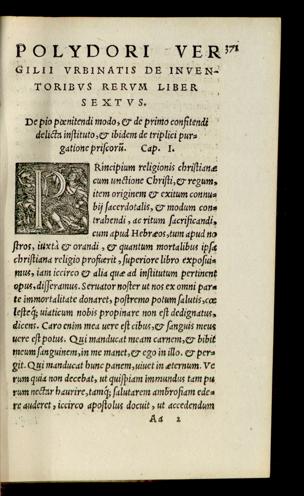 POLYDORI VER 371
GILII VRBINATIS DE INVEN-
TORIBVS RERVM LIBER
SEXTVS.
De pio pœnitendi modo, & de primo confitendi
delicta instituto, & ibidem de triplici pur-
gatione priscorũ. Cap. I.
PRincipium religionis christianæ
cum unctione Christi, & regum,
item originem & exitum connu
bij sacerdotalis, & modum con-
trahendi, ac ritum sacrificandi,
cum apud Hebræos, tum apud no
stros, iuxtà & orandi, & quantum mortalibus ipsa
christiana religio profuerit, superiore libro exposui-
mus, iam iccirco & alia quæ ad institutum pertinent
opus, disseramus. Seruator noster ut nos ex omni par-
te immortalitate donaret, postremo potum salutis, cœ
lesteq́; uiaticum nobis propinare non est dedignatus,
dicens. Caro enim mea uere est cibus, & sanguis meus
uere est potus. Qui manducat meam carnem, & bibit
meum sanguinem, in me manet, & ego in illo. & per-
git. Qui manducat hunc panem, uiuet in æternum. Ve
rum quia non decebat, ut quispiam immundus tam pu
rum nectar haurire, tamq́; salutarem ambrosiam ede-
re auderet, iccirco apostolus docuit, ut accedendum
Aa 2